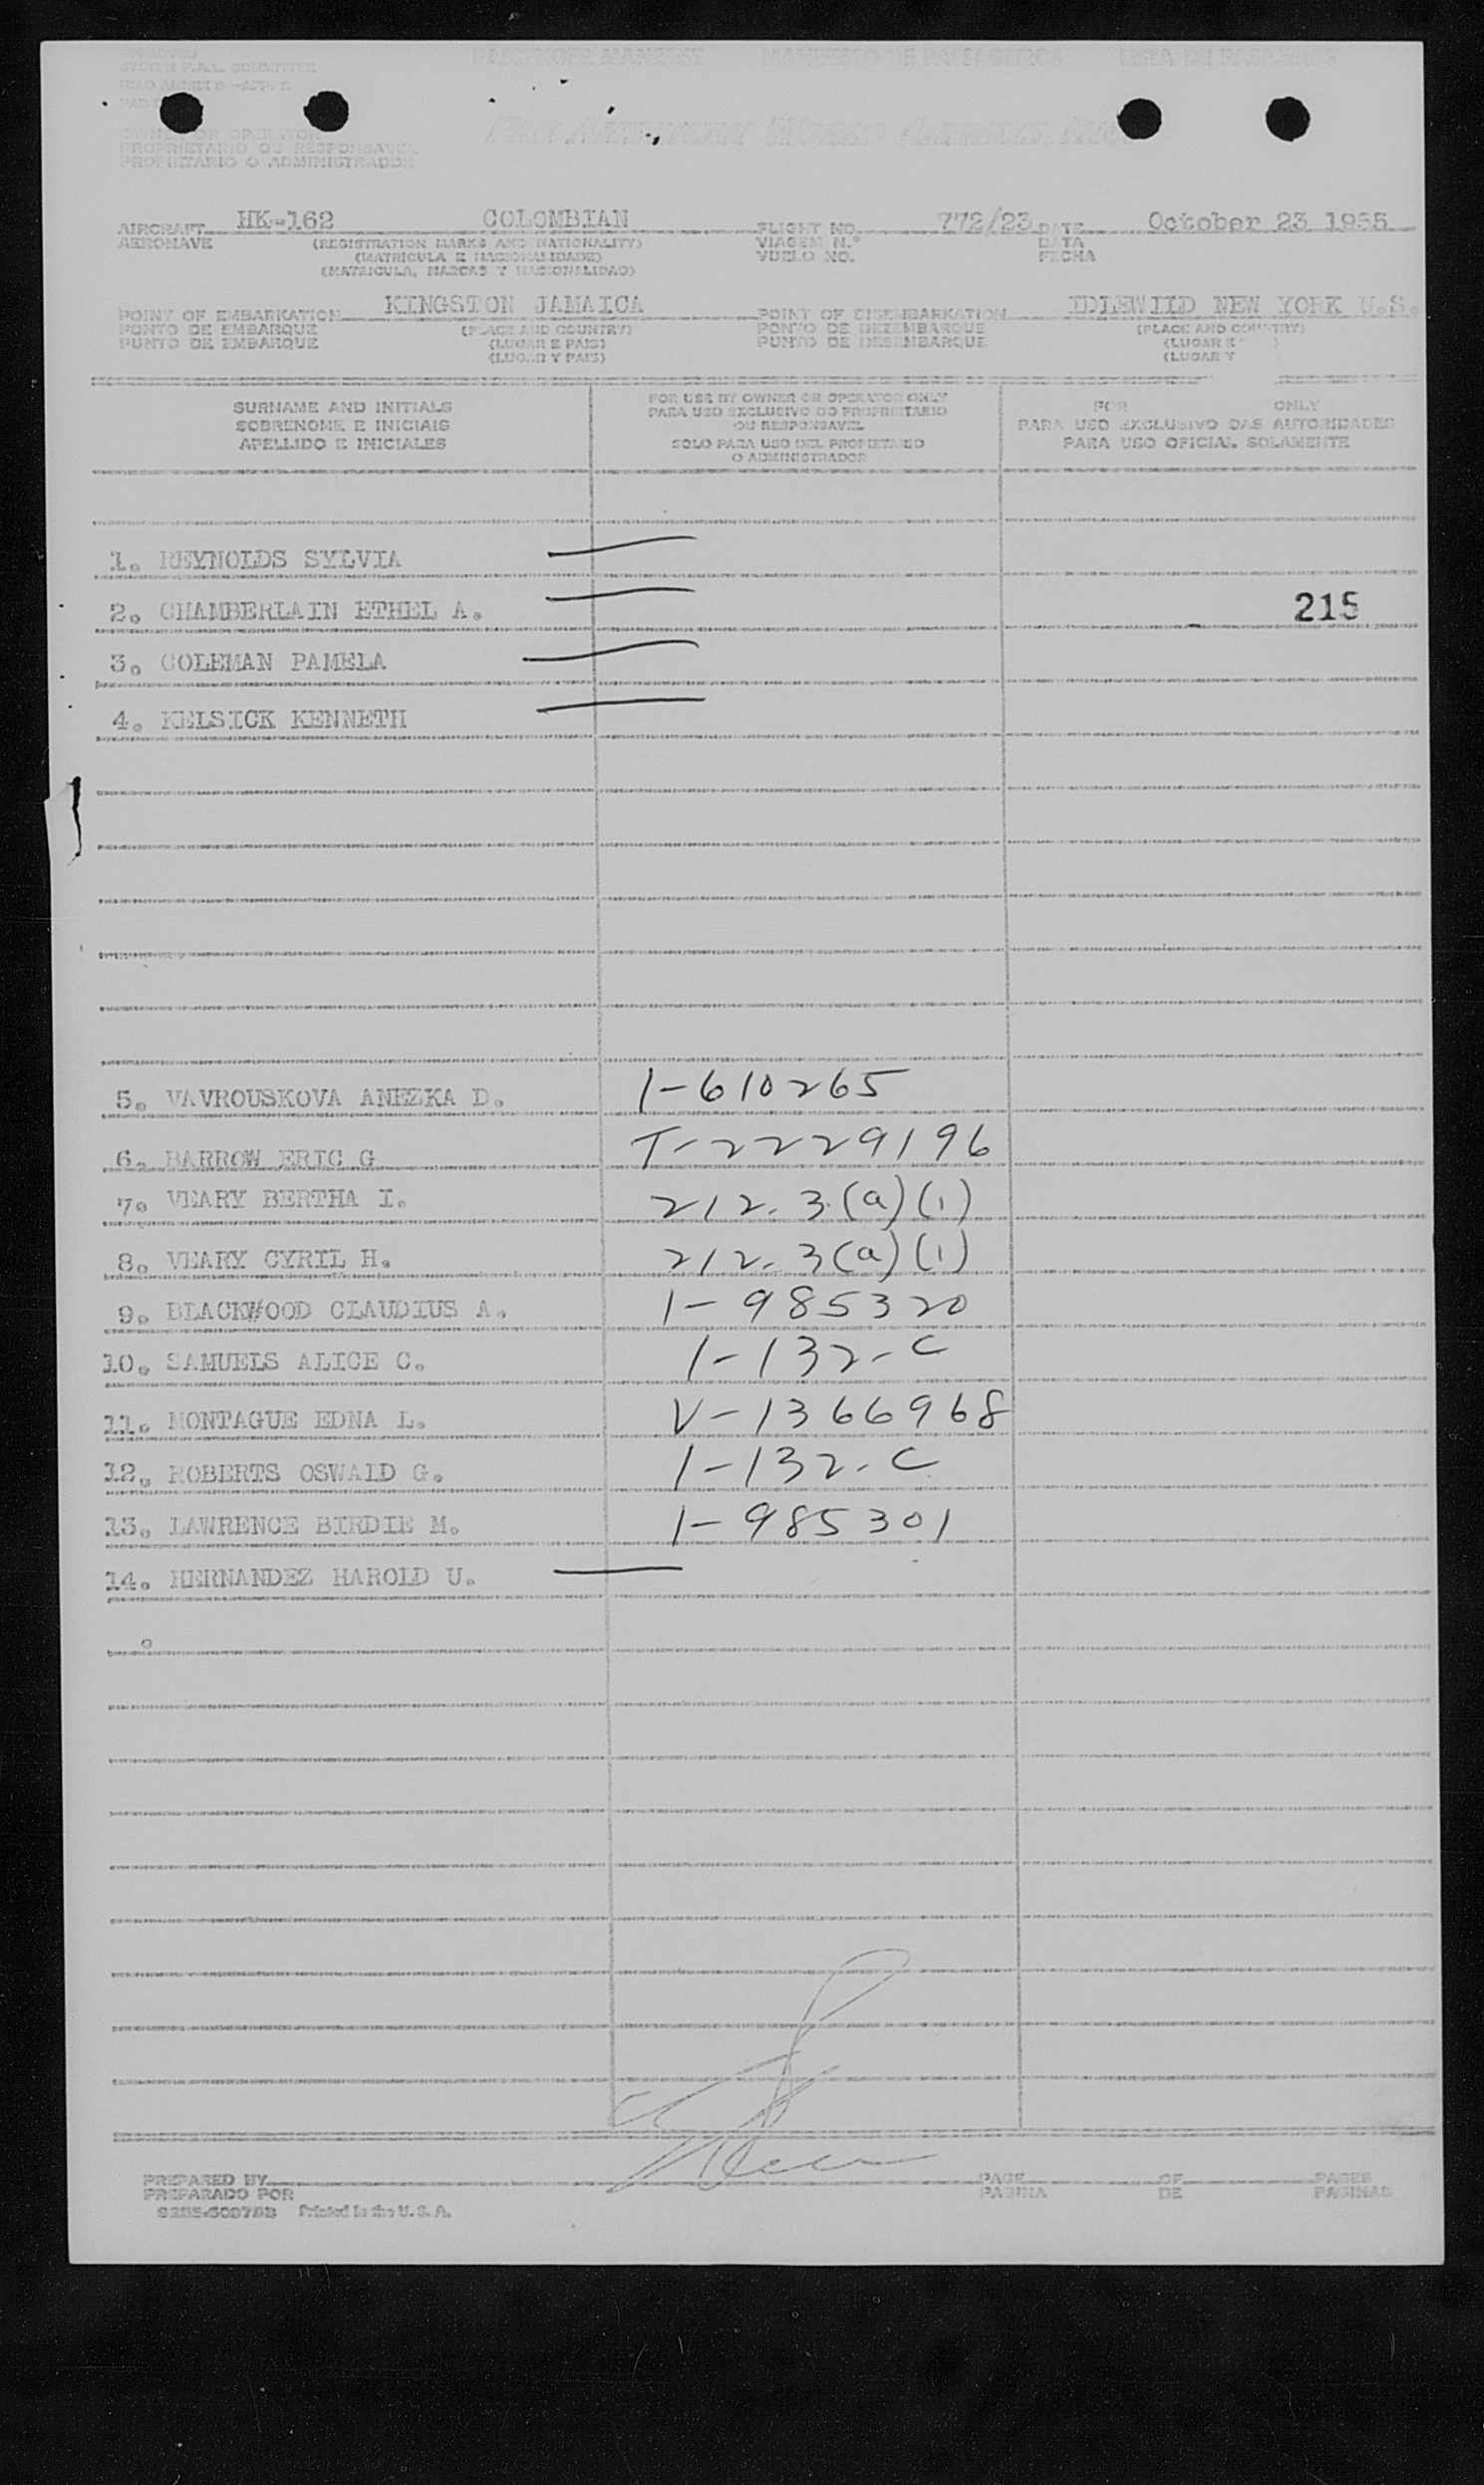 PASSENGER MANIFEST MANIFESTO DE PASSAGEIROS LISTA DE PASAJEROS
SYSTEM F.A.L. COMMITTEE
PAN AMERICAN WORLD AIRWAYS, INC.
OWNER OR OPERATOR
PROPRIETARIO OU RESPONSAVEL
PROPIETARIO O ADMINISTRADOR
AIRCRAFT HK-162 COLOMBIAN FLIGHT NO. 772/23 DATE October 23 1955
AERONAVE (REGISTRATION MARKS AND NATIONALITY) VIAGEM N.° DATA
(MATRICULA E NACIONALIDADE) VUELO NO. FECHA
(MATRICULA, MARCAS Y NACIONALIDAD)
POINT OF EMBARKATION KINGSTON JAMAICA POINT OF DISEMBARKATION IDLEWILD NEW YORK U.S.
PONTO DE EMBARQUE (PLACE AND COUNTRY) PONTO DE DEZEMBARQUE (PLACE AND COUNTRY)
PUNTO DE EMBARQUE (LUGAR E PAIS) PUNTO DE DESEMBARQUE (LUGAR E )
(LUGAR Y PAIS) (LUGAR Y
SURNAME AND INITIALS
SOBRENOME E INICIAIS
APELLIDO E INICIALES
FOR USE BY OWNER OR OPERATOR ONLY
PARA USO EXCLUSIVO DO PROPRIETARIO
OU RESPONSAVEL
SOLO PARA USO DEL PROPIETARIO
O ADMINISTRADOR
FOR ONLY
PARA USO EXCLUSIVO DAS AUTORIDADES
PARA USO OFICIAL SOLAMENTE
1. REYNOLDS SYLVIA
2. CHAMBERLAIN ETHEL A. 215
3. COLEMAN PAMELA
4. KELSICK KENNETH
5. VAVROUSKOVA ANEZKA D. 1-610265
6. BARROW ERIC G T-2229196
7. VEARY BERTHA I. 212.3.(a)(1)
8. VEARY CYRIL H. 212.3(a)(1)
9. BLACKWOOD CLAUDIUS A. 1-985320
10. SAMUELS ALICE C. 1-132-C
11. MONTAGUE EDNA L. V-1366968
12. ROBERTS OSWALD G. 1-132-C
13. LAWRENCE BIRDIE M. 1-985301
14. HERNANDEZ HAROLD U.
PREPARED BY PAGE OF PAGES
PREPARADO POR PAGINA DE PAGINAS
Printed in the U.S.A.